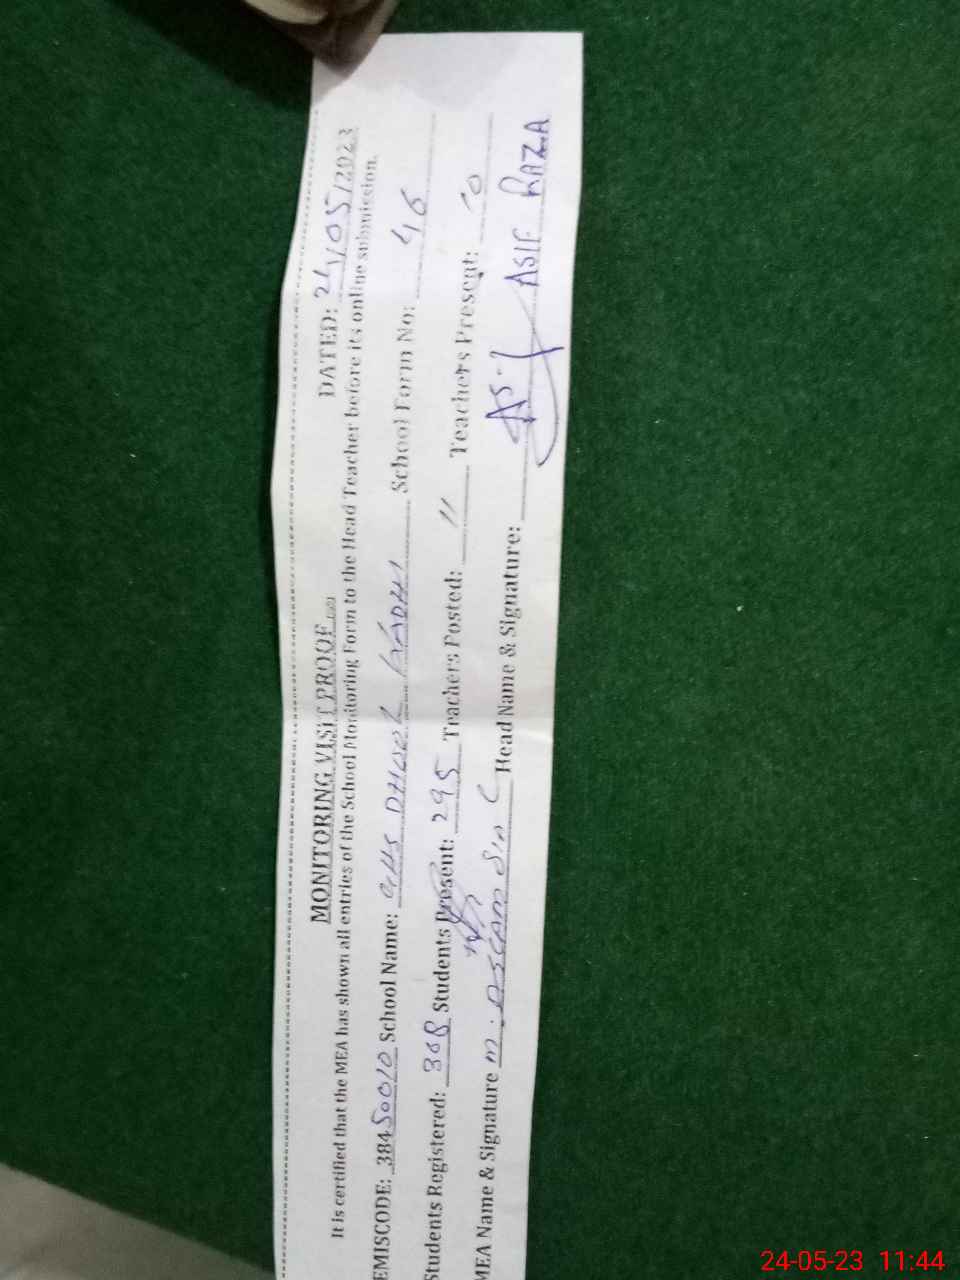 MONITORING VISIT PROOF DATED: 24/05/2023
It is certified that the MEA has shown all entries of the School Monitoring Form to the Head Teacher before its online submission.
EMISCODE: 38450010 School Name: GHS DHOOL KADHI School Form No: 46
Students Registered: 308 Students Present: 295 Teachers Posted: 11 Teachers Present: 10
MEA Name & Signature M. ASLAM Head Name & Signature: ASIF RAZA
24-05-23 11:44